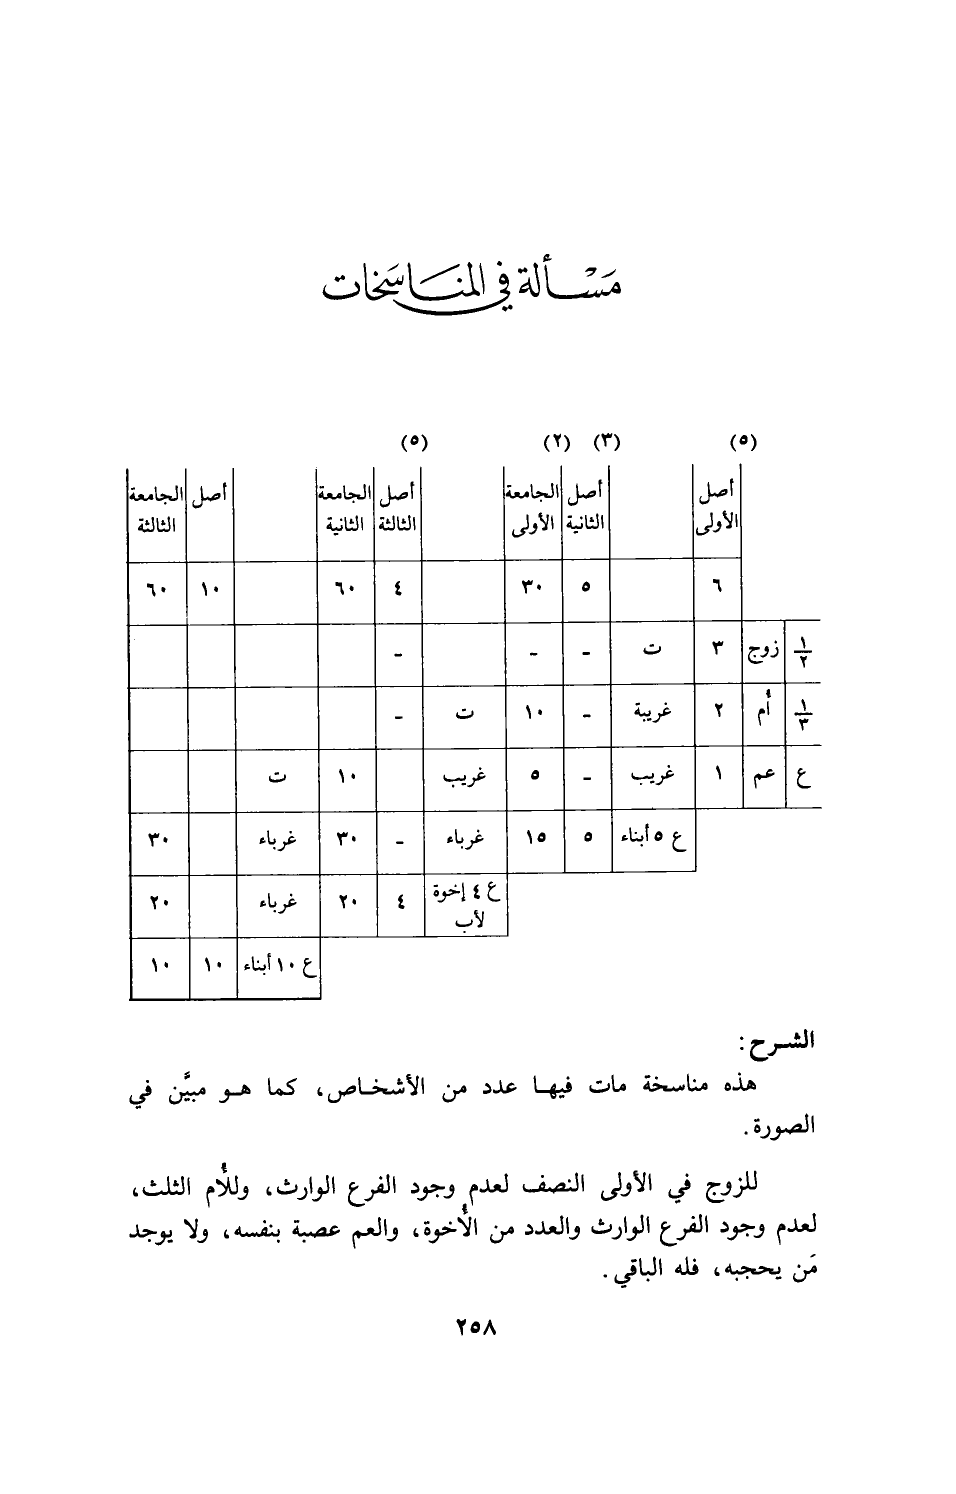 مَسْـألة في المنَاسَخات
(٥) (٣) (٢) (٥)
أصل الأولى | أصل الثانية | الجامعة الأولى | أصل الثالثة | الجامعة الثانية | أصل | الجامعة الثالثة
٦ ٥ ٣٠ ٤ ٦٠ ١٠ ٦٠
١/٢ زوج ٣ ت - - -
١/٣ أُم ٢ غريبة - ١٠ ت -
ع عم ١ غريب - ٥ غريب ١٠ ت
ع ٥ أبناء ٥ ١٥ غرباء - ٣٠ غرباء ٣٠
ع ٤ إخوة لأب ٤ ٢٠ غرباء ٢٠
ع ١٠ أبناء ١٠ ١٠
الشـرح :
هذه مناسخة مات فيهـا عدد من الأشخـاص، كما هـو مبيَّن في
الصورة.
للزوج في الأولى النصف لعدم وجود الفرع الوارث، وللأُم الثلث،
لعدم وجود الفرع الوارث والعدد من الأُخوة، والعم عصبة بنفسه، ولا يوجد
مَن يحجبه، فله الباقي.
٢٥٨